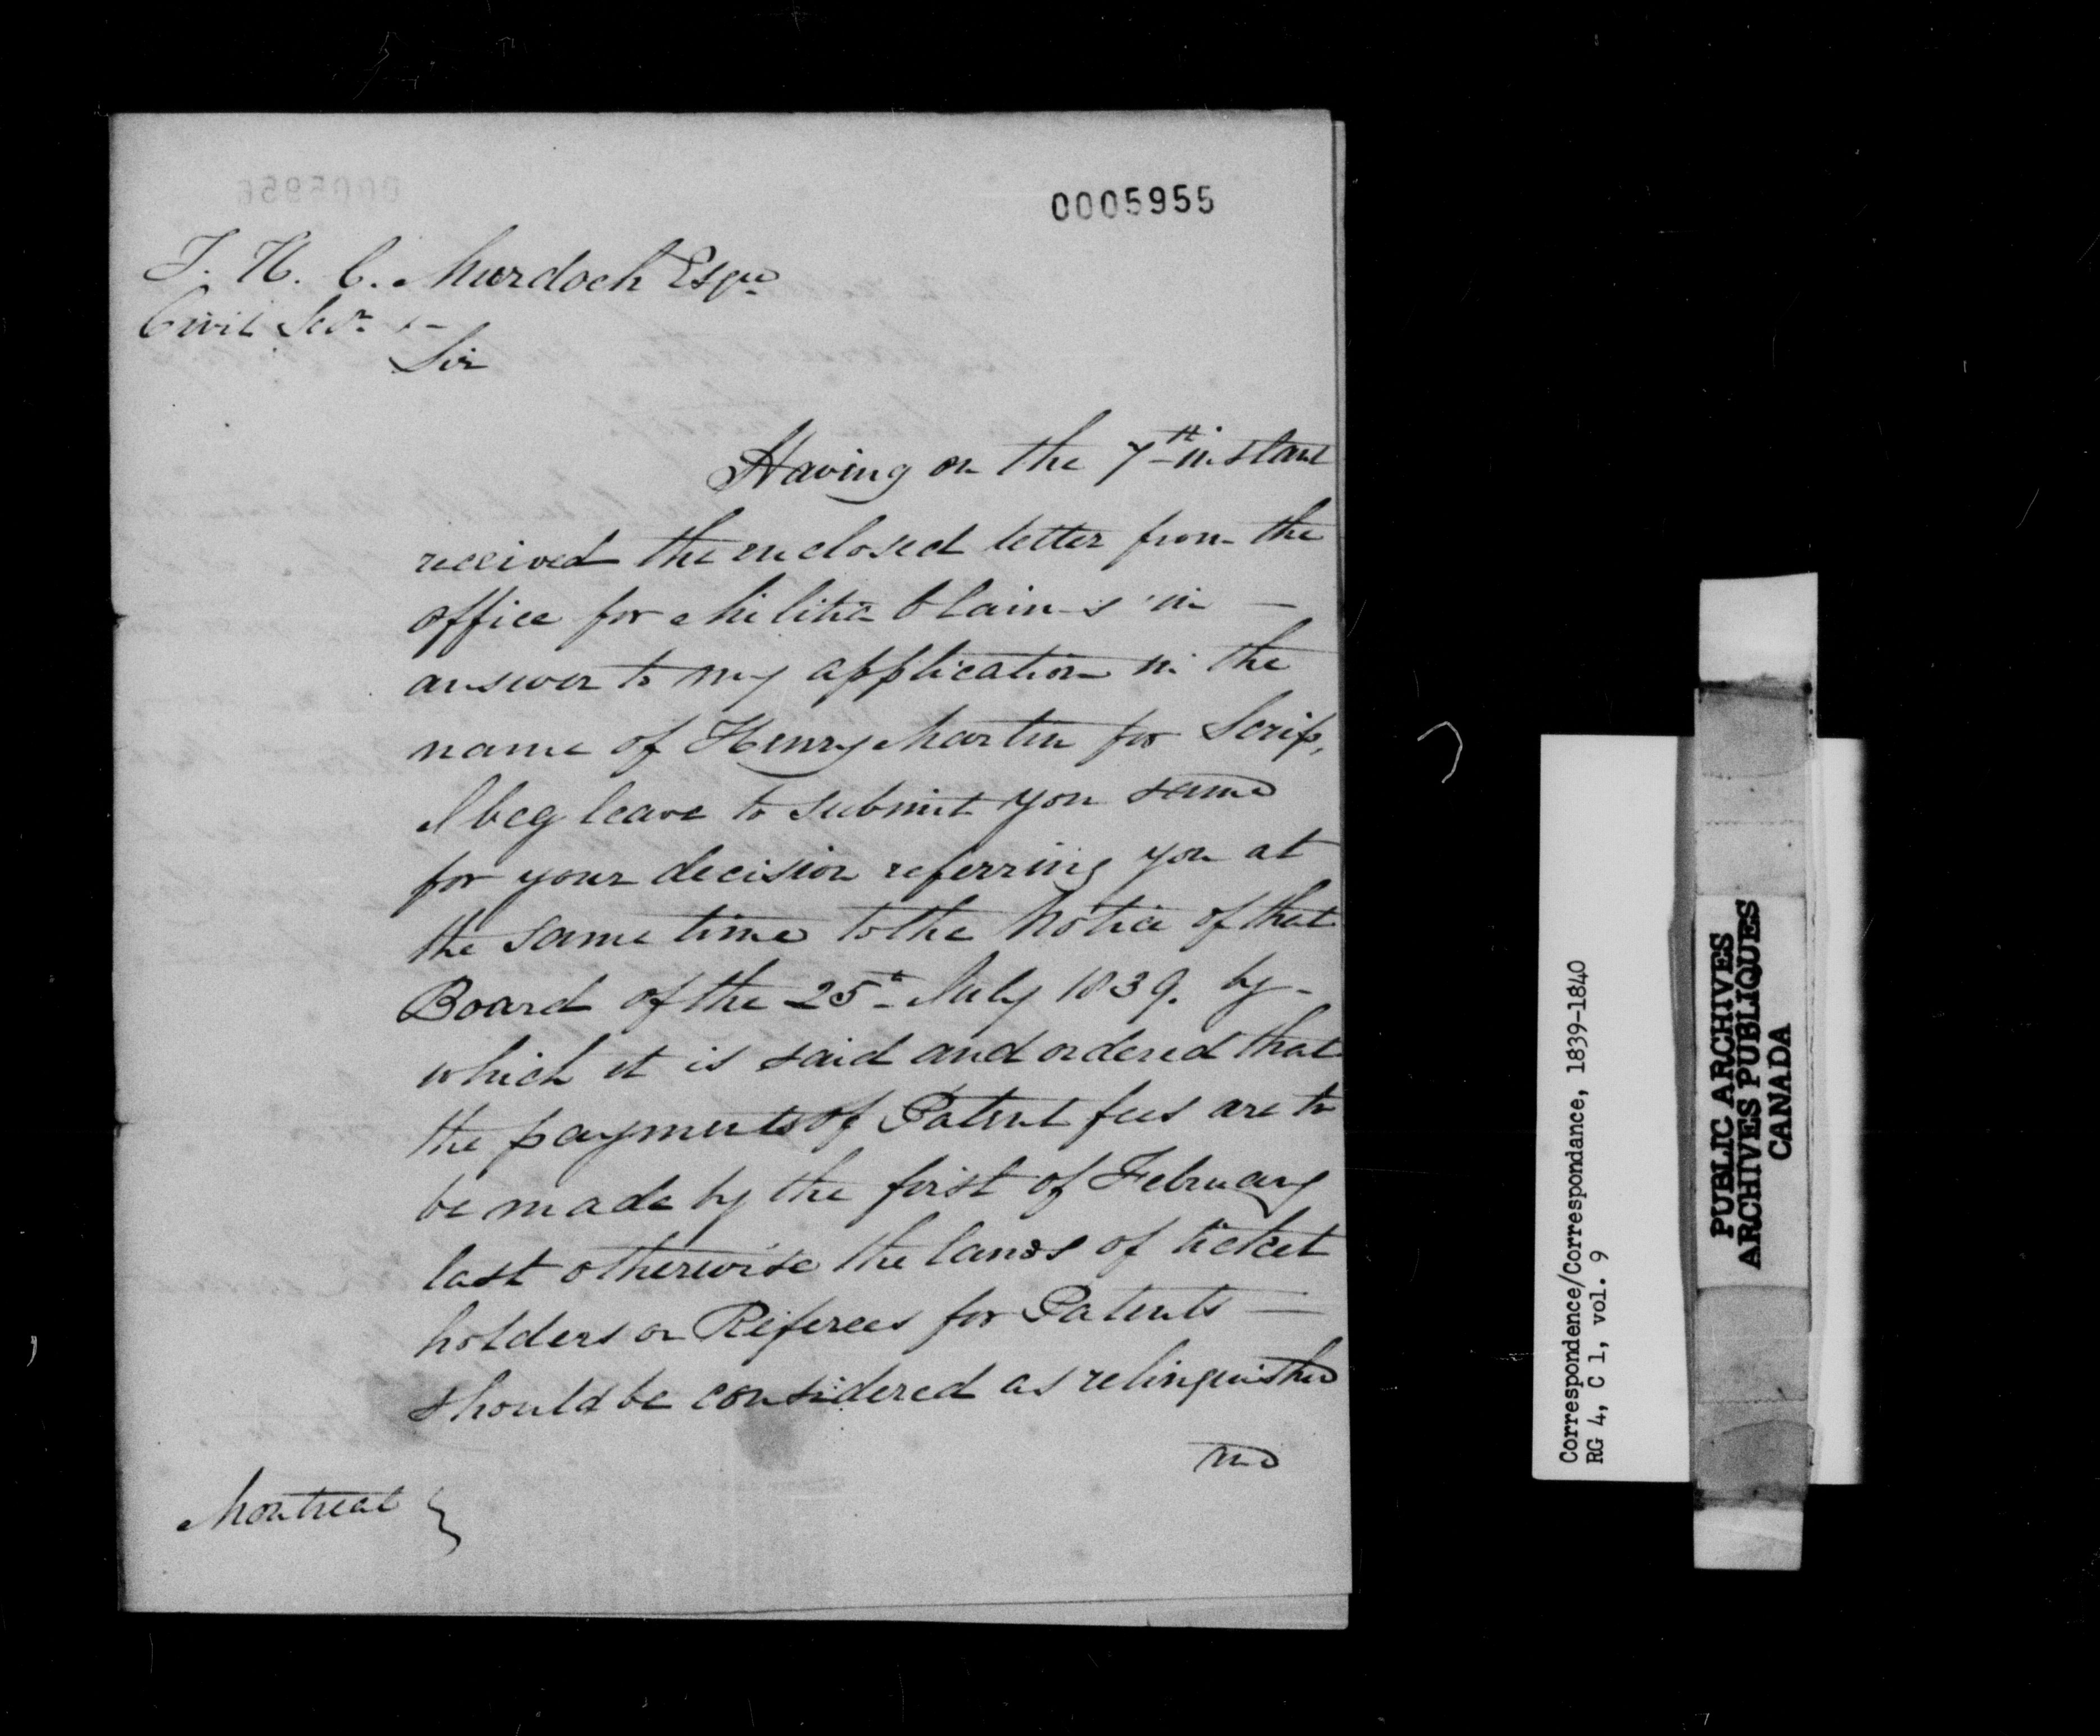 0005955
T. W. C. Murdoch Esqre
Civil Secy &-
Sir
Having on the 7th instant
received the enclosed letter from the
office for Militia Claims in —
answer to my application in the
name of Henry Martin for Scrip,
I beg leave to submit you same
for your decision referring you at
the same time to the Notice of that
Board of the 25th July 1839. by -
which it is said and ordered that
the payments of Patent fees are to
be made by the first of February
last otherwise the lands of ticket
holders or Referees for Patents —
should be considered as relinquished
and
Montreal
Correspondence/Correspondance, 1839-1840
RG 4, C 1, vol. 9
PUBLIC ARCHIVES
ARCHIVES PUBLIQUES
CANADA